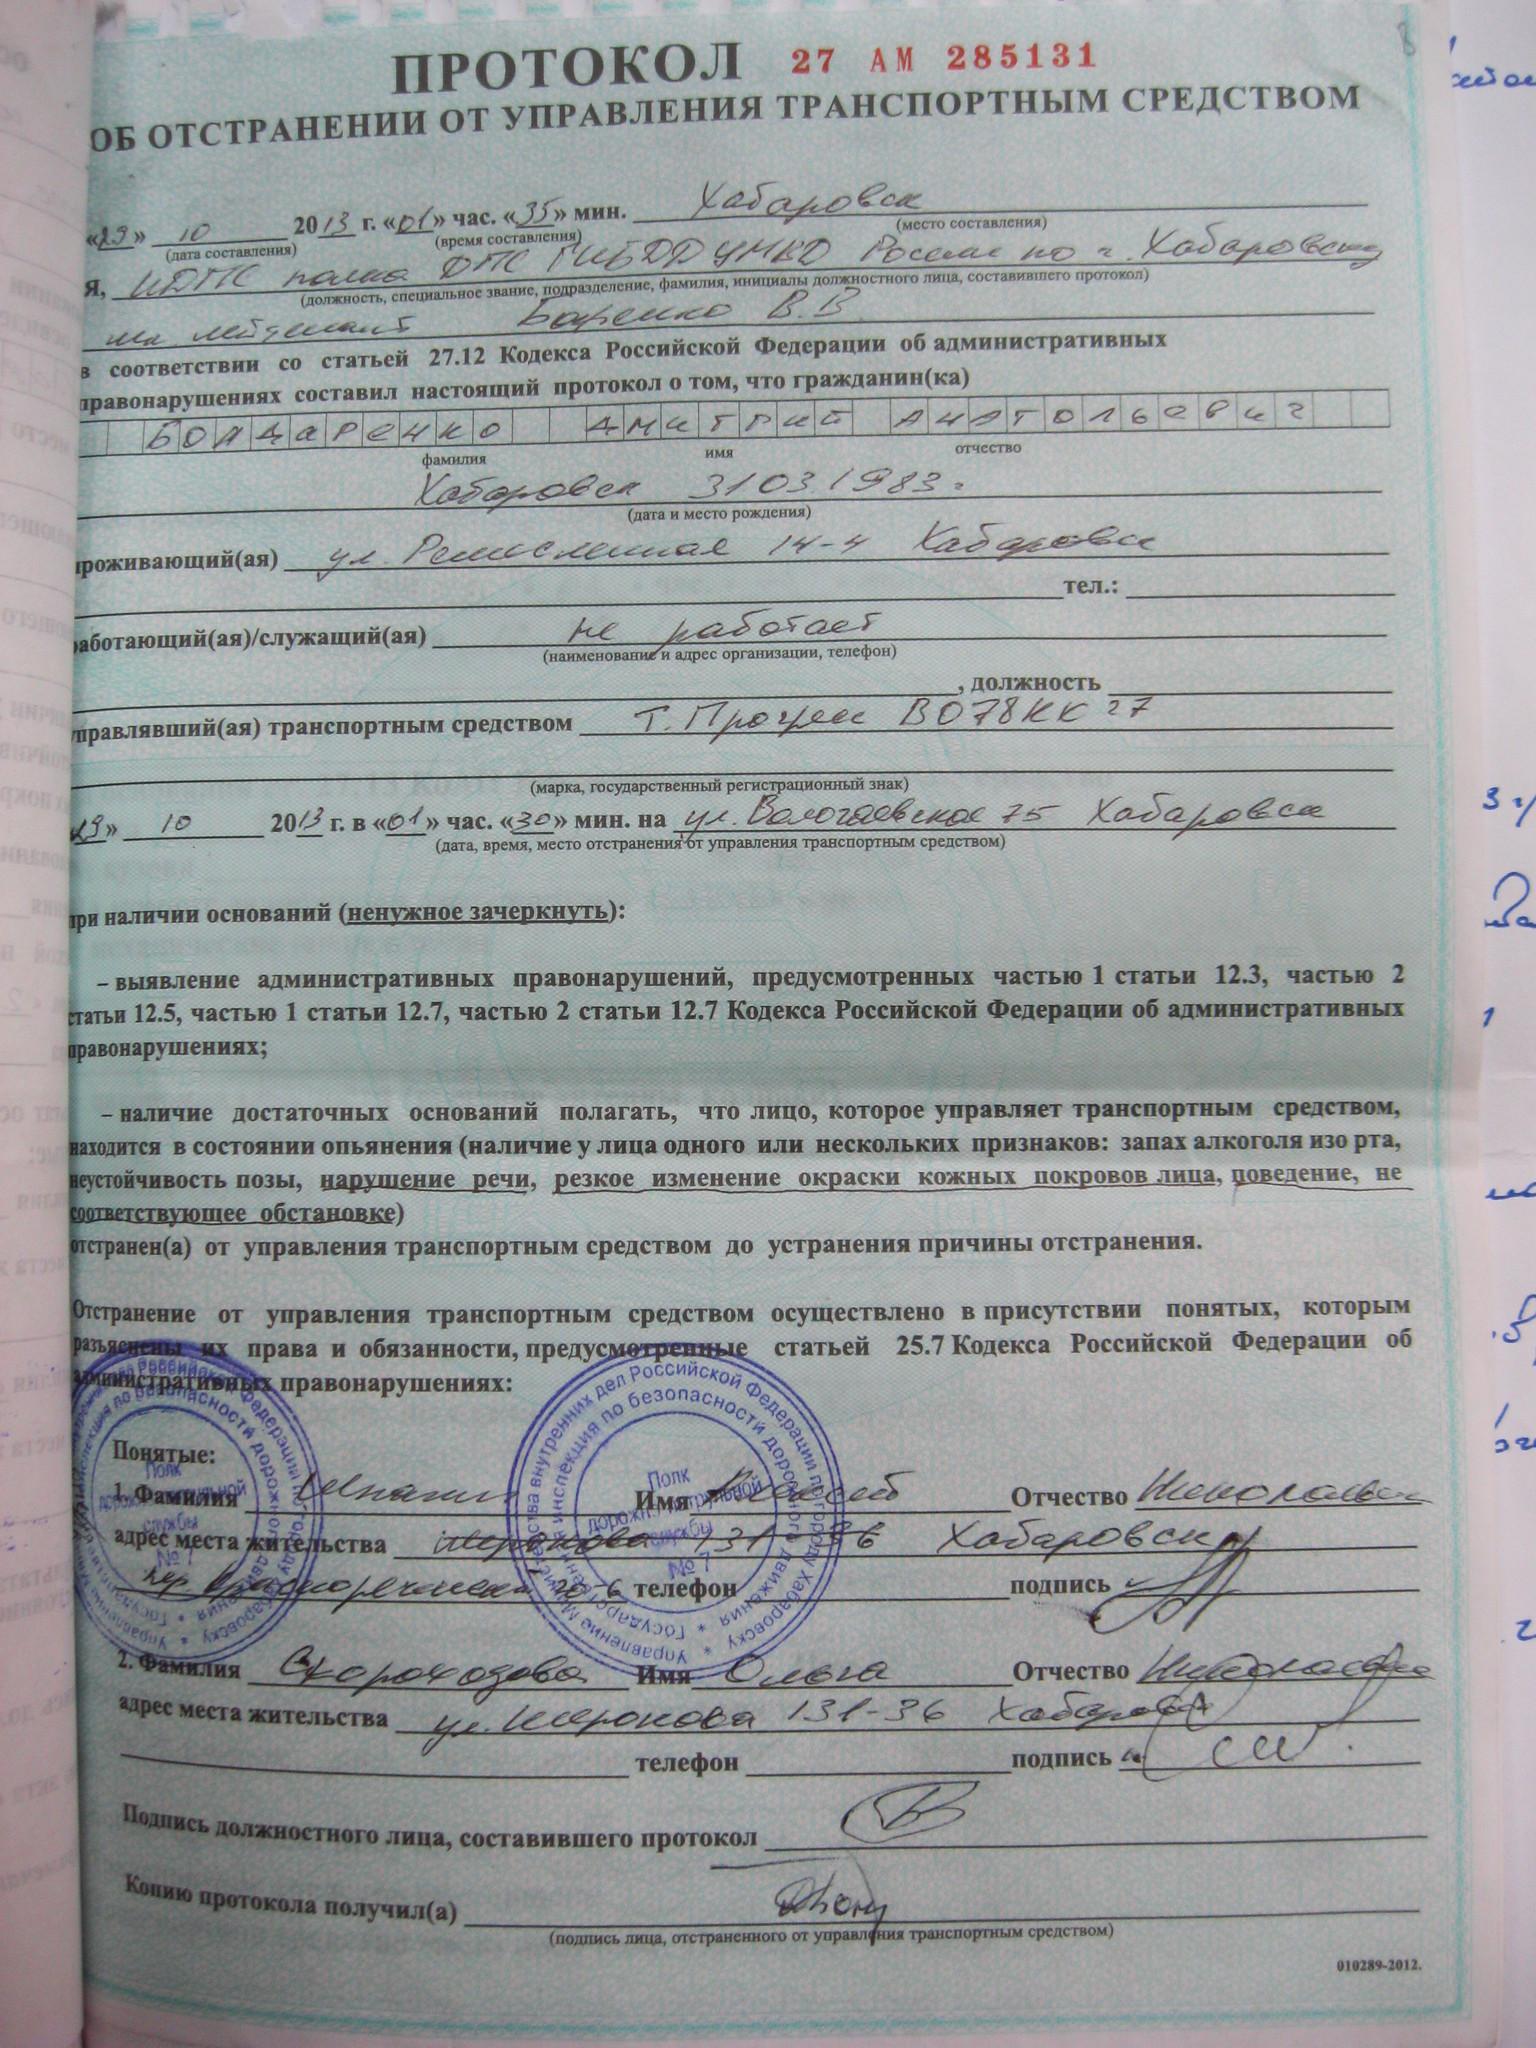 ПРОТОКОЛ 27 АМ 285131
ОБ ОТСТРАНЕНИИ ОТ УПРАВЛЕНИЯ ТРАНСПОРТНЫМ СРЕДСТВОМ
«29» 10 2013 г. «01» час. «35» мин. Хабаровск
(дата составления) (время составления) (место составления)
Я, ИДПС полка ДПС ГИБДД УМВД России по г. Хабаровску
(должность, специальное звание, подразделение, фамилия, инициалы должностного лица, составившего протокол)
мл. лейтенант В.В.
в соответствии со статьей 27.12 Кодекса Российской Федерации об административных
правонарушениях составил настоящий протокол о том, что гражданин(ка)
БОНДАРЕНКО ДМИТРИЙ АНАТОЛЬЕВИЧ
фамилия имя отчество
Хабаровск 31.03.1983 г
(дата и место рождения)
проживающий(ая) ул. Ремесленная 14-4 Хабаровск
тел.:
работающий(ая)/служащий(ая) не работает
(наименование и адрес организации, телефон)
, должность
управлявший(ая) транспортным средством Т. Прогрес В078КК 27
(марка, государственный регистрационный знак)
29» 10 2013 г. в «01» час. «30» мин. на ул. Волочаевская 75 Хабаровск
(дата, время, место отстранения от управления транспортным средством)
при наличии оснований (ненужное зачеркнуть):
– выявление административных правонарушений, предусмотренных частью 1 статьи 12.3, частью 2
статьи 12.5, частью 1 статьи 12.7, частью 2 статьи 12.7 Кодекса Российской Федерации об административных
правонарушениях;
– наличие достаточных оснований полагать, что лицо, которое управляет транспортным средством,
находится в состоянии опьянения (наличие у лица одного или нескольких признаков: запах алкоголя изо рта,
неустойчивость позы, нарушение речи, резкое изменение окраски кожных покровов лица, поведение, не
соответствующее обстановке)
отстранен(а) от управления транспортным средством до устранения причины отстранения.
Отстранение от управления транспортным средством осуществлено в присутствии понятых, которым
разъяснены их права и обязанности, предусмотренные статьей 25.7 Кодекса Российской Федерации об
административных правонарушениях:
Понятые:
1. Фамилия Имя Алексей Отчество Николаевич
адрес места жительства Шеронова 131-36 Хабаровск
пер. Краснореченский 20-6 телефон подпись
2. Фамилия Скороходова Имя Ольга Отчество Николаевна
адрес места жительства ул. Шеронова 131-36 Хабаровск
телефон подпись
Подпись должностного лица, составившего протокол
Копию протокола получил(а)
(подпись лица, отстраненного от управления транспортным средством)
010289-2012.
Управление Министерства внутренних дел Российской Федерации по городу Хабаровску
Государственная инспекция по безопасности дорожного движения
Полк
дорожно-патрульной
службы
№ 7